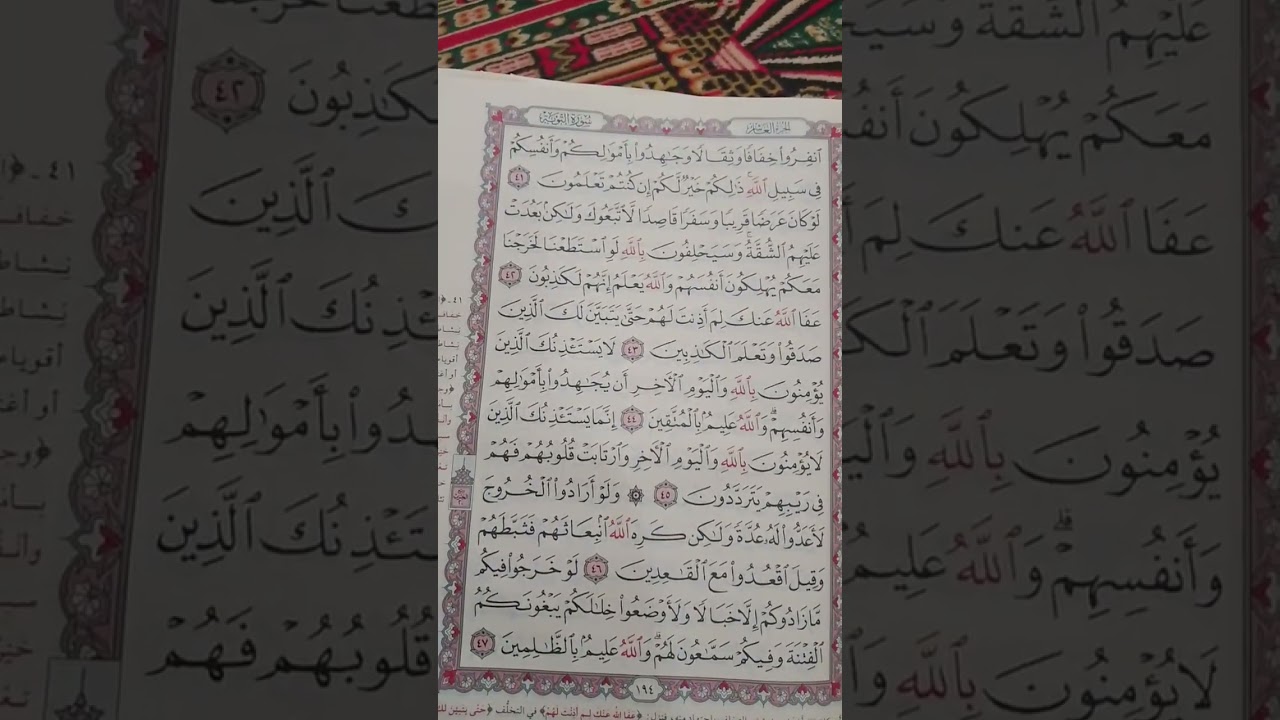 سُورَةُ التَّوْبَةِ
الجُزْءُ العَاشِرُ
ٱنفِرُوا۟ خِفَافًا وَثِقَالًا وَجَٰهِدُوا۟ بِأَمْوَٰلِكُمْ وَأَنفُسِكُمْ
فِى سَبِيلِ ٱللَّهِ ۚ ذَٰلِكُمْ خَيْرٌ لَّكُمْ إِن كُنتُمْ تَعْلَمُونَ ٤١
لَوْ كَانَ عَرَضًا قَرِيبًا وَسَفَرًا قَاصِدًا لَّٱتَّبَعُوكَ وَلَٰكِنۢ بَعُدَتْ
عَلَيْهِمُ ٱلشُّقَّةُ ۚ وَسَيَحْلِفُونَ بِٱللَّهِ لَوِ ٱسْتَطَعْنَا لَخَرَجْنَا
مَعَكُمْ يُهْلِكُونَ أَنفُسَهُمْ وَٱللَّهُ يَعْلَمُ إِنَّهُمْ لَكَٰذِبُونَ ٤٢
عَفَا ٱللَّهُ عَنكَ لِمَ أَذِنتَ لَهُمْ حَتَّىٰ يَتَبَيَّنَ لَكَ ٱلَّذِينَ
صَدَقُوا۟ وَتَعْلَمَ ٱلْكَٰذِبِينَ ٤٣ لَا يَسْتَـْٔذِنُكَ ٱلَّذِينَ
يُؤْمِنُونَ بِٱللَّهِ وَٱلْيَوْمِ ٱلْءَاخِرِ أَن يُجَٰهِدُوا۟ بِأَمْوَٰلِهِمْ
وَأَنفُسِهِمْ ۗ وَٱللَّهُ عَلِيمٌۢ بِٱلْمُتَّقِينَ ٤٤ إِنَّمَا يَسْتَـْٔذِنُكَ ٱلَّذِينَ
لَا يُؤْمِنُونَ بِٱللَّهِ وَٱلْيَوْمِ ٱلْءَاخِرِ وَٱرْتَابَتْ قُلُوبُهُمْ فَهُمْ
فِى رَيْبِهِمْ يَتَرَدَّدُونَ ٤٥ ۞ وَلَوْ أَرَادُوا۟ ٱلْخُرُوجَ
لَأَعَدُّوا۟ لَهُۥ عُدَّةً وَلَٰكِن كَرِهَ ٱللَّهُ ٱنۢبِعَاثَهُمْ فَثَبَّطَهُمْ
وَقِيلَ ٱقْعُدُوا۟ مَعَ ٱلْقَٰعِدِينَ ٤٦ لَوْ خَرَجُوا۟ فِيكُم
مَّا زَادُوكُمْ إِلَّا خَبَالًا وَلَأَوْضَعُوا۟ خِلَٰلَكُمْ يَبْغُونَكُمُ
ٱلْفِتْنَةَ وَفِيكُمْ سَمَّٰعُونَ لَهُمْ ۗ وَٱللَّهُ عَلِيمٌۢ بِٱلظَّٰلِمِينَ ٤٧
١٩٤